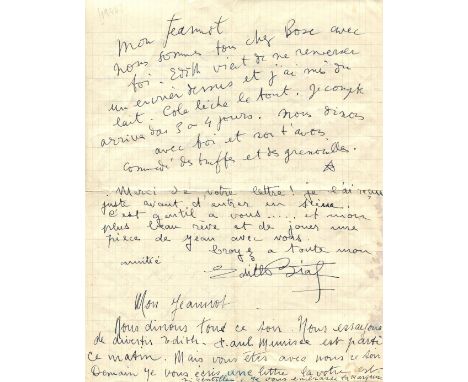 Mon Jeannot
nous sommes tous chez Bose avec
toi. Edith vient de me renverser
un encrier dessus et j'ai mis du
lait. Cole lèche le tout. Je compte
arriver dans 3 a 4 jours. Nous dinons
avec toi et
commandé des truffes et des grenouilles.
Merci de votre lettre! je l'ai reçue
juste avant d'entrer en Seine.
C'est gentil a vous ..... et mon
plus beau rêve et de jouer une
pièce de Jean avec vous
croyez a toute mon
amitié
Edith Piaf
Mon Jeannot
Nous dinons tous ce soir. Nous essayons
de divertir Edith. Paul Meurisse est parti
ce matin. Mais vous êtes avec nous ce soir
Demain je vous écris une lettre la votre est
si gentille je vous embrasse